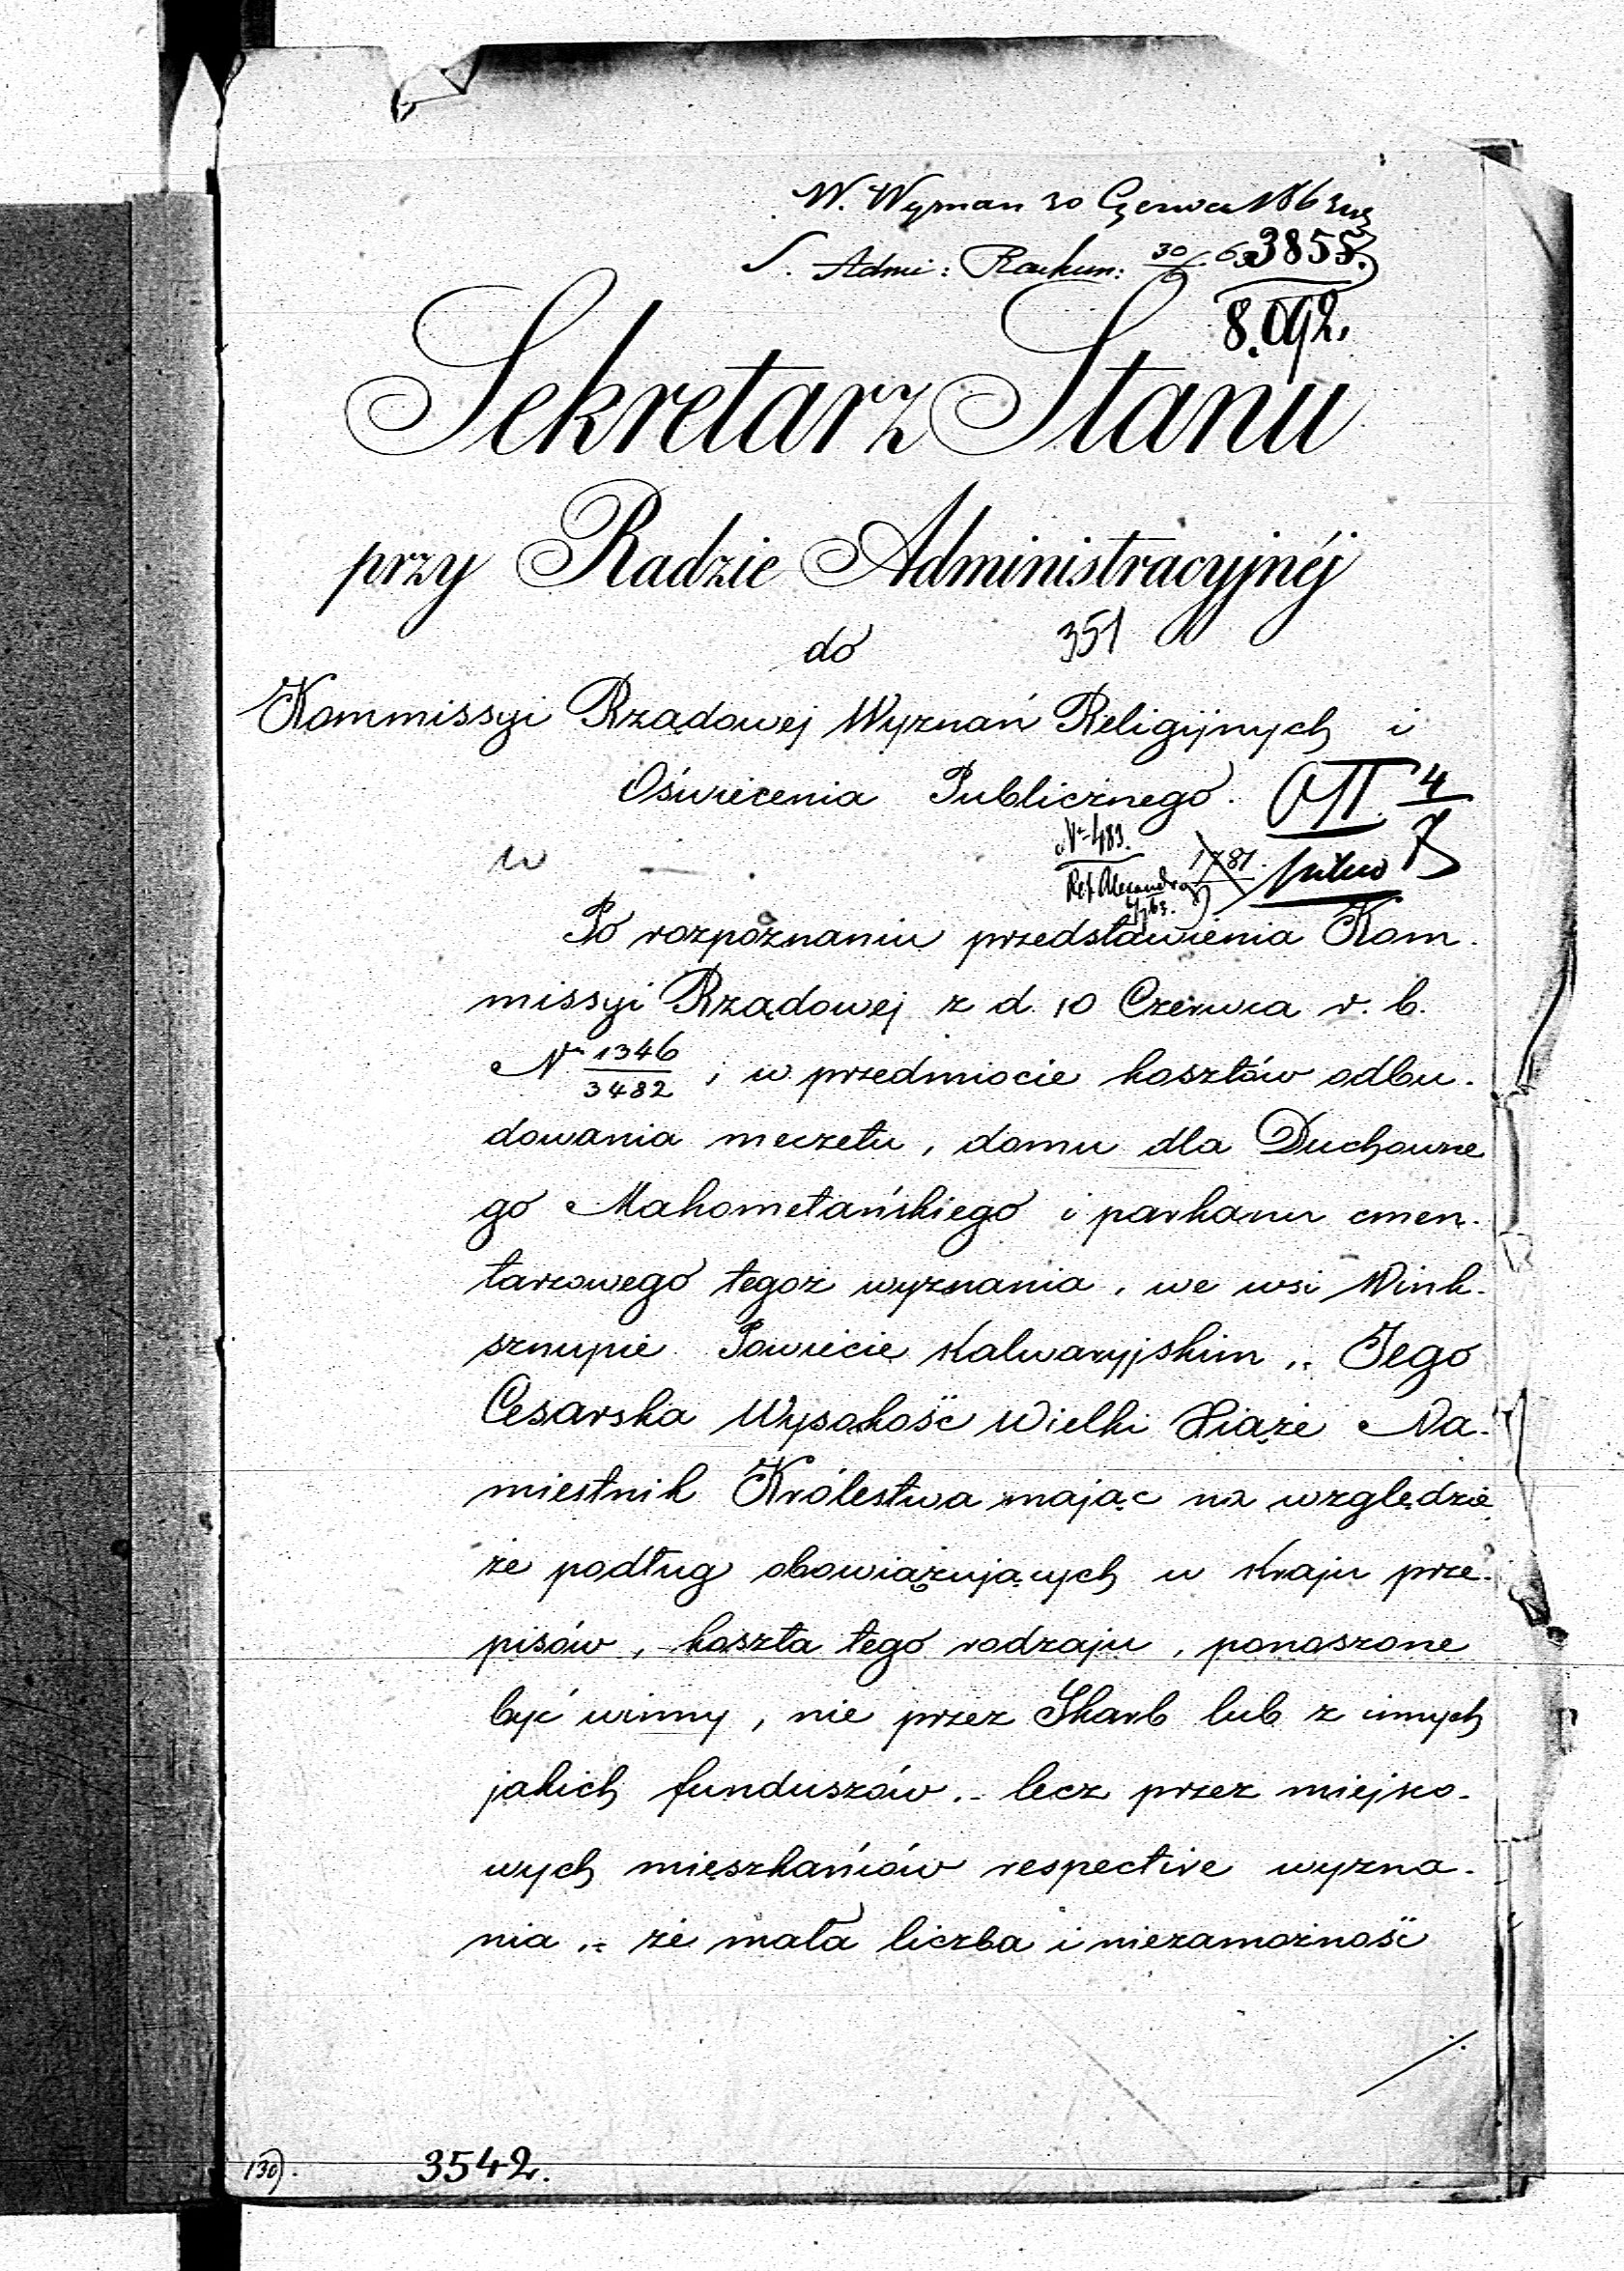 W. Wyznań 30 Czerwca 1863
S. Admi: Rachun: 30/6 63 3855.
8.092.
Sekretarz Stanu
przy Radzie Administracyjnéj
do 351
Kommissyi Rządowej Wyznań Religijnych i
Oświecenia Publicznego. 4/7
Nr 483. 1781.
Ref. Alexandrow
Po rozpoznaniu przedstawienia Kom-
missyi Rządowej z d. 10 Czerwca r. b.
Nr 1346/3482, w przedmiocie kosztów odbu-
dowania meczetu, domu dla Duchowne
go Mahometańskiego i parkanu cmen-
tarzowego tegoż wyznania, we wsi Wink-
sznupie Powiecie Kalwaryjskim, Jego
Cesarska Wysokość Wielki Xiąże Na-
miestnik Królestwa mając na względzie
że podług obowiązujących w Kraju prze-
pisów, koszta tego rodzaju, ponoszone
być winny, nie przez Skarb lub z innych
jakich funduszów, lecz przez miejsco-
wych mieszkańców respective wyzna-
nia, że mała liczba i niezamożność
./.
130). 3542.